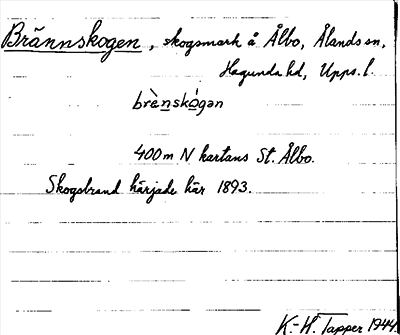 Brännskogen, skogsmark å Ålbo, Ålands sn,
Hagunda hd, Upps. l.
brènskógan
400 m N kartans St. Ålbo.
Skogsbrand härjade här 1893.
K.-H. Tapper 1944.